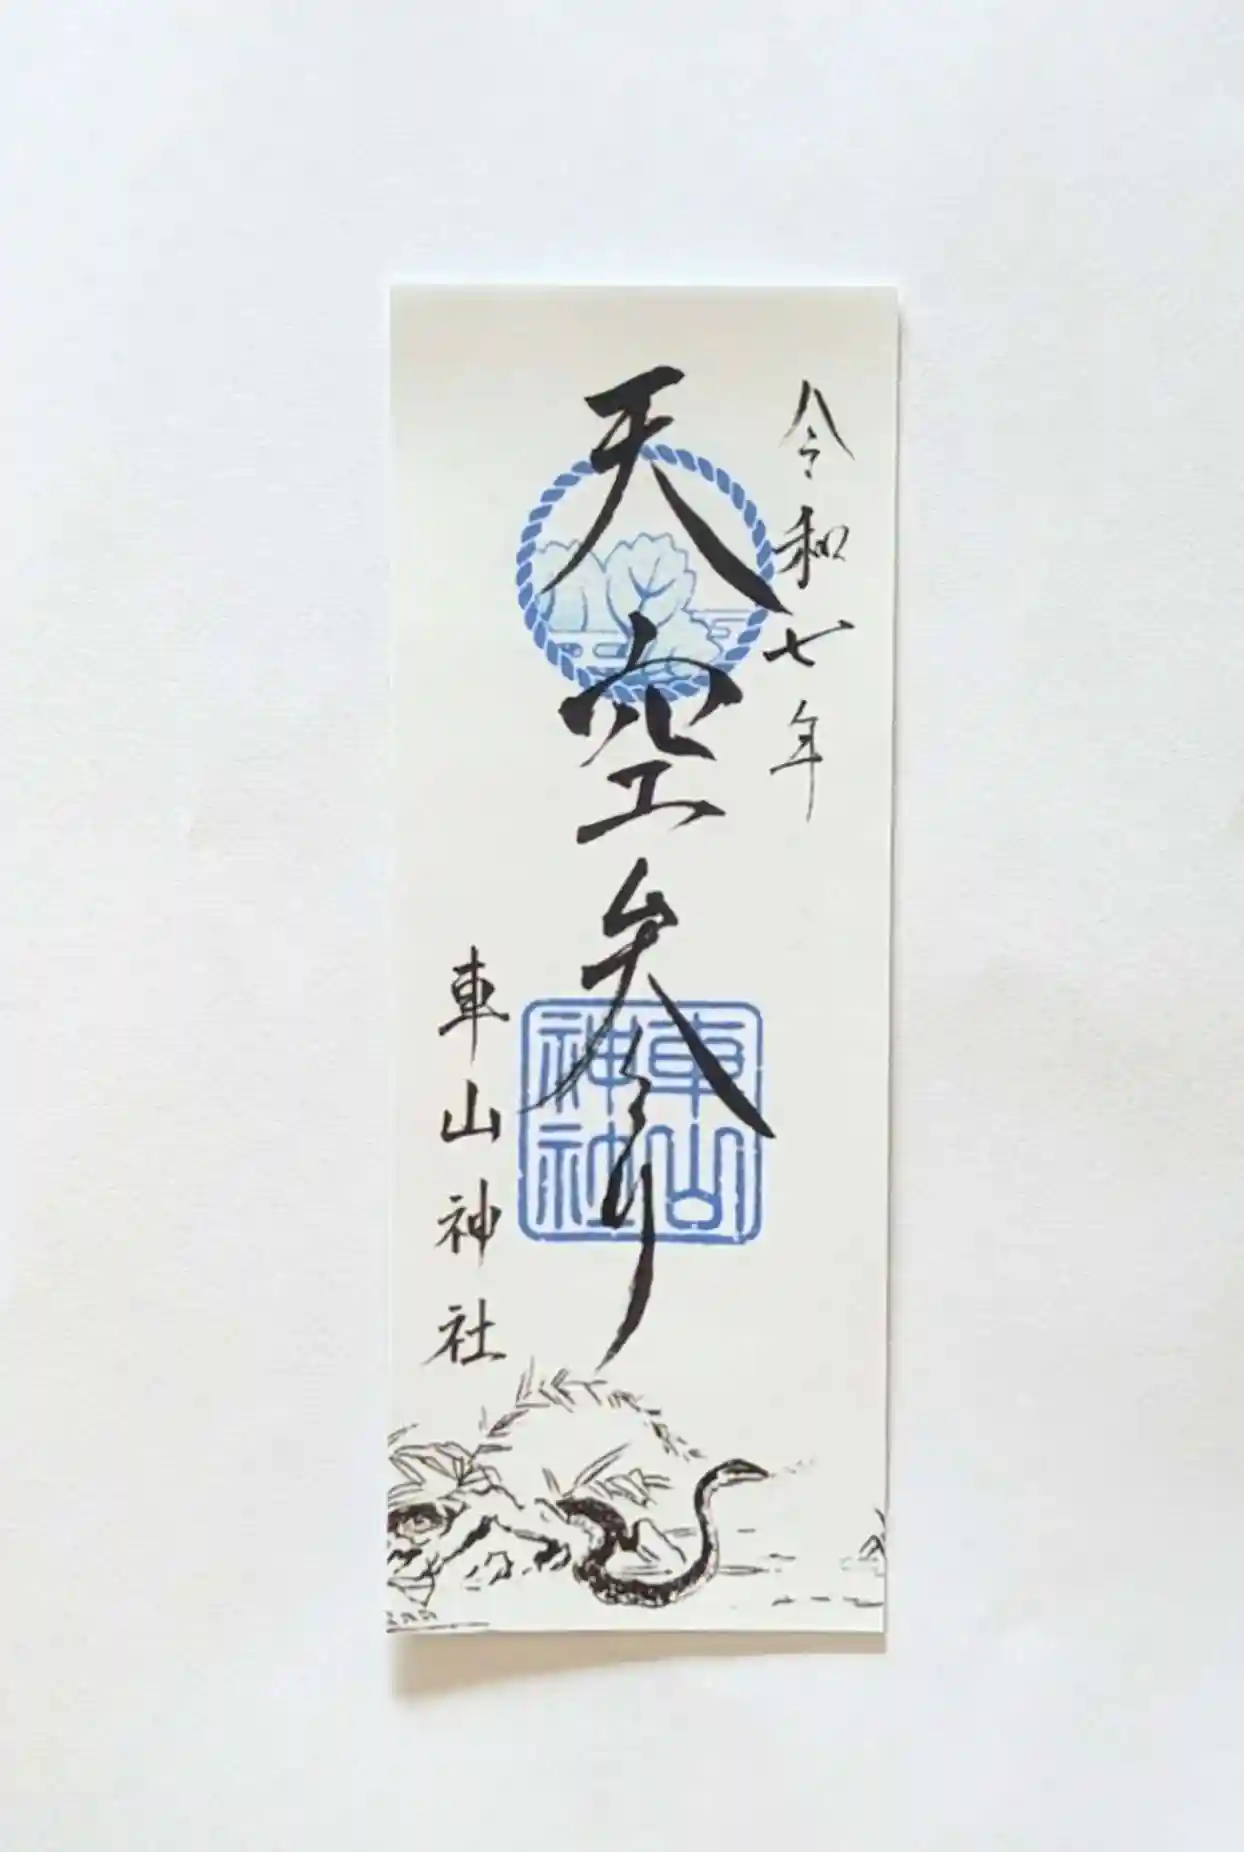 令和七年
天空参り
車山神社
車山神社